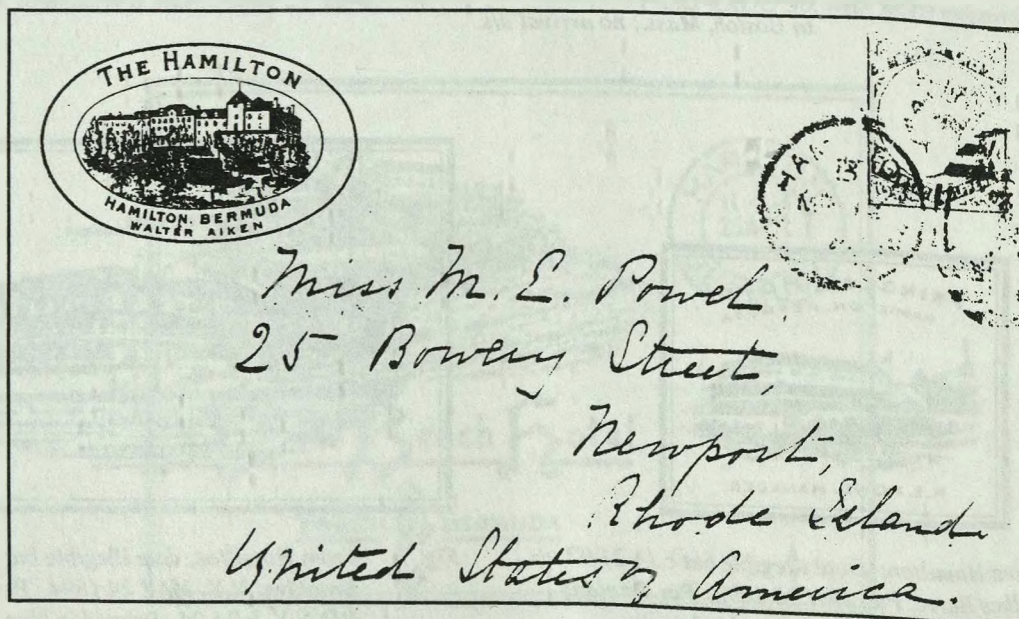 THE HAMILTON
HAMILTON. BERMUDA
WALTER AIKEN
Miss M. E. Powel
25 Bowery Street,
Newport,
Rhode Island
United States of America.